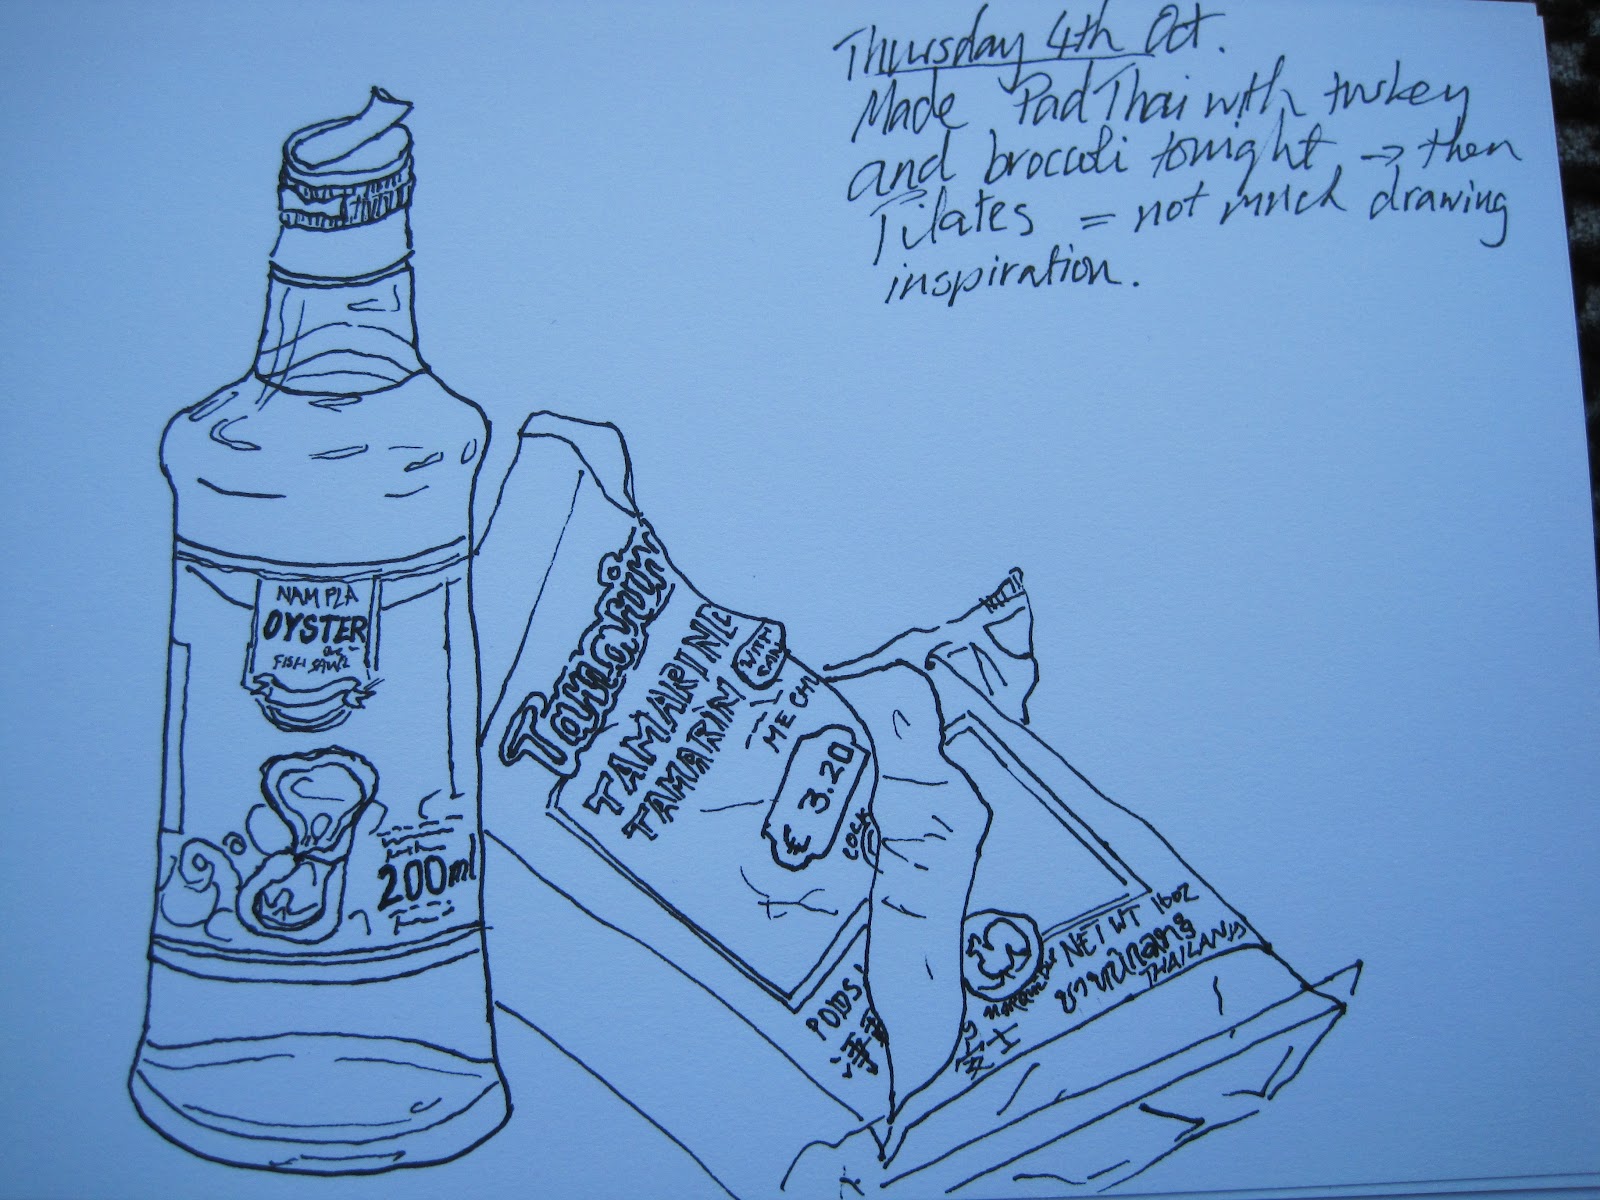 Thursday 4th Oct.
Made Pad Thai with turkey
and broccoli tonight → then
Pilates = not much drawing
inspiration.
NAM PLA
OYSTER
FISH SAUCE
200ml
Tamarin
TAMARINE
TAMARIN
WITH
ME CHU
€ 3.20
COCK
POIDS
NET WT 16oz
THAILAND